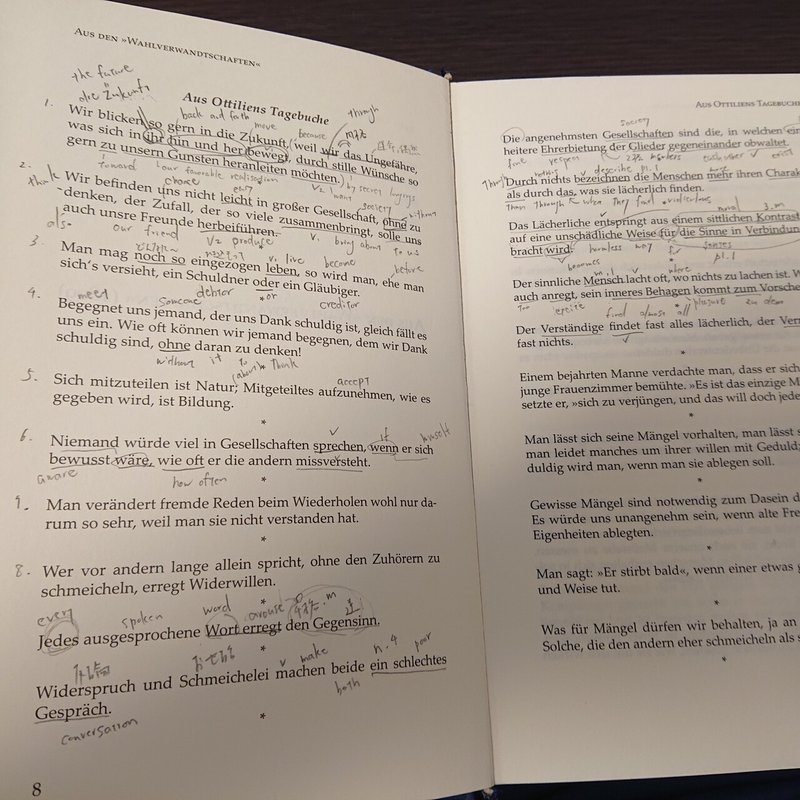 AUS DEN »WAHLVERWANDTSCHAFTEN«
the future
die Zukunft
Aus Ottiliens Tagebuche
back and fath move because through
1. Wir blicken so gern in die Zukunft, weil wir das Ungefähre,
was sich in ihr hin und her bewegt, durch stille Wünsche so
gern zu unsern Gunsten heranleiten möchten.
toward our favorable realisation
chance easy society without
2. Wir befinden uns nicht leicht in großer Gesellschaft, ohne zu
think
denken, der Zufall, der so viele zusammenbringt, solle uns
auch unsre Freunde herbeiführen.
also our friend V2 produce bring about to us
3. v. live become before
Man mag noch so eingezogen leben, so wird man, ehe man
sich's versieht, ein Schuldner oder ein Gläubiger.
debtor or creditor
4. meet someone
Begegnet uns jemand, der uns Dank schuldig ist, gleich fällt es
uns ein. Wie oft können wir jemand begegnen, dem wir Dank
schuldig sind, ohne daran zu denken!
without it to think
accept
5. Sich mitzuteilen ist Natur; Mitgeteiltes aufzunehmen, wie es
gegeben wird, ist Bildung.
*
if himself
6. Niemand würde viel in Gesellschaften sprechen, wenn er sich
bewusst wäre, wie oft er die andern missversteht.
aware how often
*
Man verändert fremde Reden beim Wiederholen wohl nur da-
rum so sehr, weil man sie nicht verstanden hat.
*
8. Wer vor andern lange allein spricht, ohne den Zuhörern zu
schmeicheln, erregt Widerwillen.
*
every spoken word arouse
Jedes ausgesprochene Wort erregt den Gegensinn.
*
おせじ v make n.4 poor
Widerspruch und Schmeichelei machen beide ein schlechtes
both
Gespräch.
conversation
*
8
AUS OTTILIENS TAGEBUCHE
society
Die angenehmsten Gesellschaften sind die, in welchen
heitere Ehrerbietung der Glieder gegeneinander obwaltet.
describe pl.1
Durch nichts bezeichnen die Menschen mehr ihren Charak
als durch das, was sie lächerlich finden.
than through when they find ridiculous
*
moral
Das Lächerliche entspringt aus einem sittlichen Kontrast
auf eine unschädliche Weise für die Sinne in Verbindun
bracht wird.
harmless way senses
becomes pl.1
where
Der sinnliche Mensch lacht oft, wo nichts zu lachen ist. W
auch anregt, sein inneres Behagen kommt zum Vorsche
pleasure
find almost all
Der Verständige findet fast alles lächerlich, der Vern
fast nichts.
*
Einem bejahrten Manne verdachte man, dass er sich
junge Frauenzimmer bemühte. »Es ist das einzige M
setzte er, »sich zu verjüngen, und das will doch jede
*
Man lässt sich seine Mängel vorhalten, man lässt s
man leidet manches um ihrer willen mit Geduld;
duldig wird man, wenn man sie ablegen soll.
*
Gewisse Mängel sind notwendig zum Dasein d
Es würde uns unangenehm sein, wenn alte Fre
Eigenheiten ablegten.
*
Man sagt: »Er stirbt bald«, wenn einer etwas g
und Weise tut.
*
Was für Mängel dürfen wir behalten, ja an
Solche, die den andern eher schmeicheln als s
*